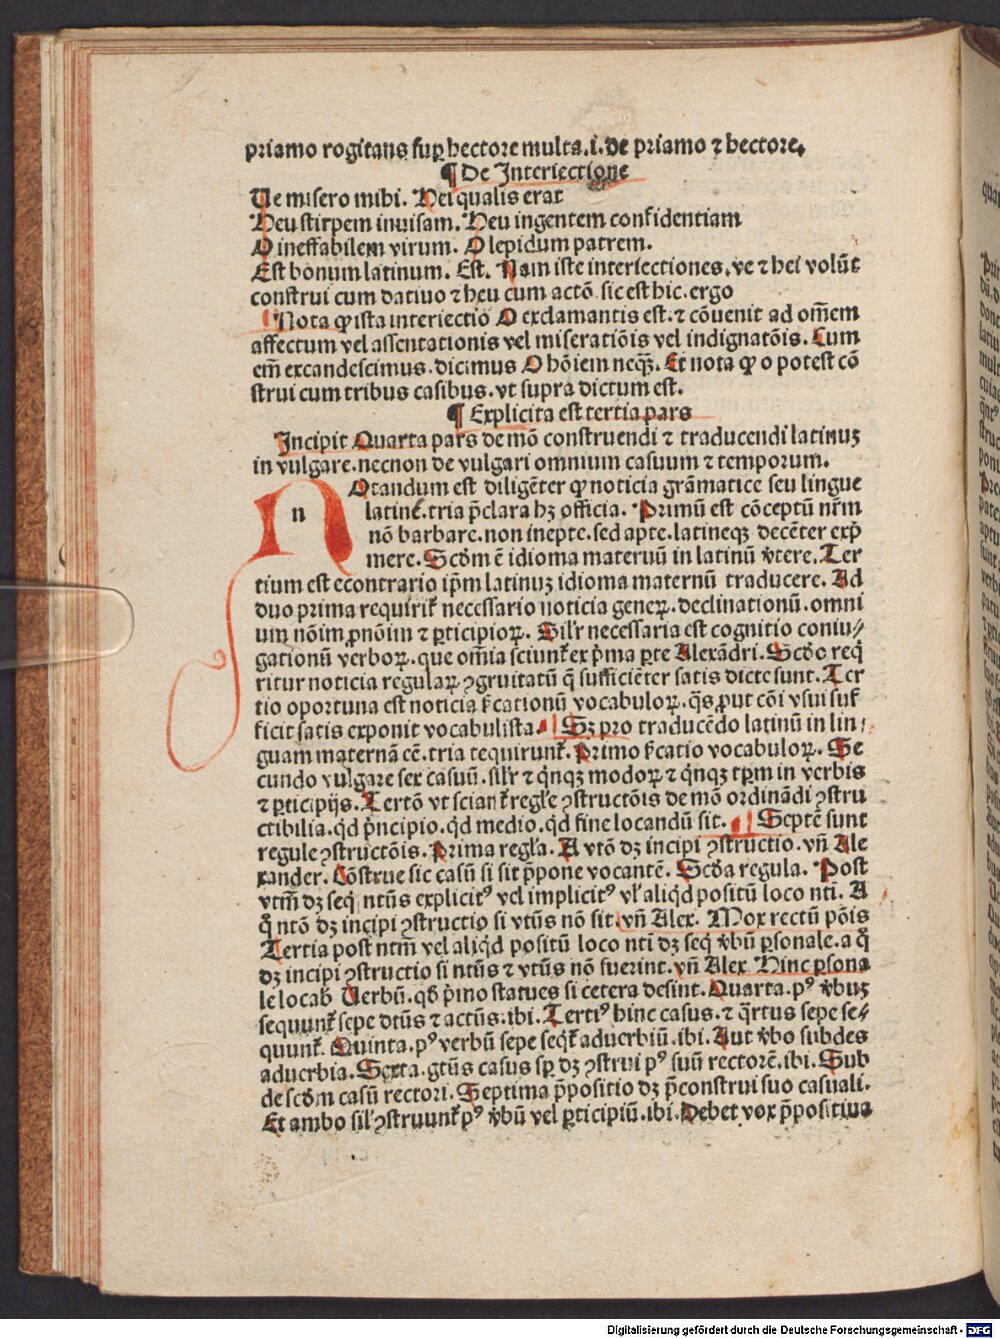 priamo rogitans sup̱ hectore multa.i.de priamo ⁊ hectore.
¶ De Interiectione
Ue misero mihi. Hei qualis erat
Heu stirpem inuisam. Heu ingentem confidentiam
O ineffabilem virum. O lepidum patrem.
Est bonum latinum. Est. Nam iste interiectiones.ve ⁊ hei volūt
construi cum datiuo ⁊ heu cum actō sic est hic.ergo
Nota ꝙ ista interiectio O exclamantis est.⁊ cōuenit ad om̄em
affectum vel assentationis vel miseratiōis vel indignatōis. Cum
em̄ excandescimus.dicimus O hōiem neq̄ꝫ. Et nota ꝙ o potest cō
strui cum tribus casibus.vt supra dictum est.
¶ Explicita est tertia pars
Incipit Quarta pars de mō construendi ⁊ traducendi latinuꝫ
in vulgare.necnon de vulgari omnium casuum ⁊ temporum.
n Otandum est diligēter ꝙ noticia grāmatice seu lingue
latine.tria p̄clara hꝫ officia. Primū est cōceptū nr̄m
nō barbare.non inepte.sed apte.latineqꝫ decēter exp̄
mere. Scd̄m ē idioma maternū in latinū v̓tere. Ter
tium est econtrario ip̄m latinuꝫ idioma maternū traducere. Ad
duo prima requirit᷑ necessario noticia geneꝝ.declinationū.omni
um nōim ꝓnōim ⁊ ꝑticipioꝝ. Silr̄ necessaria est cognitio coniu⸗
gationū verboꝝ.que om̄ia sciunt᷑ ex p̓ma ꝑte Alexādri. Scd̄o req̓
ritur noticia regulaꝝ ꝯgruitatū q̄ sufficiēter satis dicte sunt. Ter
tio oportuna est noticia s̓cationū vocabuloꝝ.q̄s ꝓut cōi vsui suf
ficit satis exponit vocabulista. Sꝫ pro traducēdo latinū in lin⸗
guam maternā cē.tria requirunt᷑. Primo s̓catio vocabuloꝝ. Se
cundo vulgare sex casuū.silr̄ ⁊ q̓nqꝫ modoꝝ ⁊ q̓nqꝫ tp̄m in verbis
⁊ ꝑticipijs. Tertō vt sciant᷑ regl̄e ꝯstructōis de mō ordinādi ꝯstru
ctibilia.qd̓ p̓ncipio.qd̓ medio.qd̓ fine locandū sit. Septē sunt
regule ꝯstructōis. Prima regl̄a. A vtō dꝫ incipi ꝯstructio.vn̄ Ale
xander. Cōstrue sic casū si sit p̄pone vocantē. Scd̄a regula. Post
vtm̄ dꝫ seq̓ ntūs explicitꝰ vel implicitꝰ vl̓ aliqd̓ positū loco nti. A
q̊ ntō dꝫ incipi ꝯstructio si vtūs nō sit.vn̄ Alex. Mox rectū pōis
Tertia post ntm̄ vel aliqd̓ positū loco nti dꝫ seq̓ v̓bū ꝑsonale.a q̊
dꝫ incipi ꝯstructio si ntūs ⁊ vtūs nō fuerint.vn̄ Alex Hinc ꝑsona
le locab̓ Verbū.qd̓ p̓mo statues si cetera desint. Quarta.pꝰ v̓buꝫ
sequunt᷑ sepe dtūs ⁊ actūs.ibi. Tertiꝰ hinc casus.⁊ q̓rtus sepe se⸗
quunt᷑. Quinta.pꝰ verbū sepe seqt᷑ aduerbiū.ibi. Aut v̓bo subdes
aduerbia. Sexta.gtūs casus sp̱ dꝫ ꝯstrui pꝰ suū rectorē.ibi. Sub
de scd̄m casū rectori. Septima p̄positio dꝫ p̄construi suo casuali.
Et ambo sil̓ ꝯstruunt᷑ pꝰ v̓bū vel ꝑticipiū.ibi. Debet vox p̄positiua
Digitalisierung gefördert durch die Deutsche Forschungsgemeinschaft - DFG